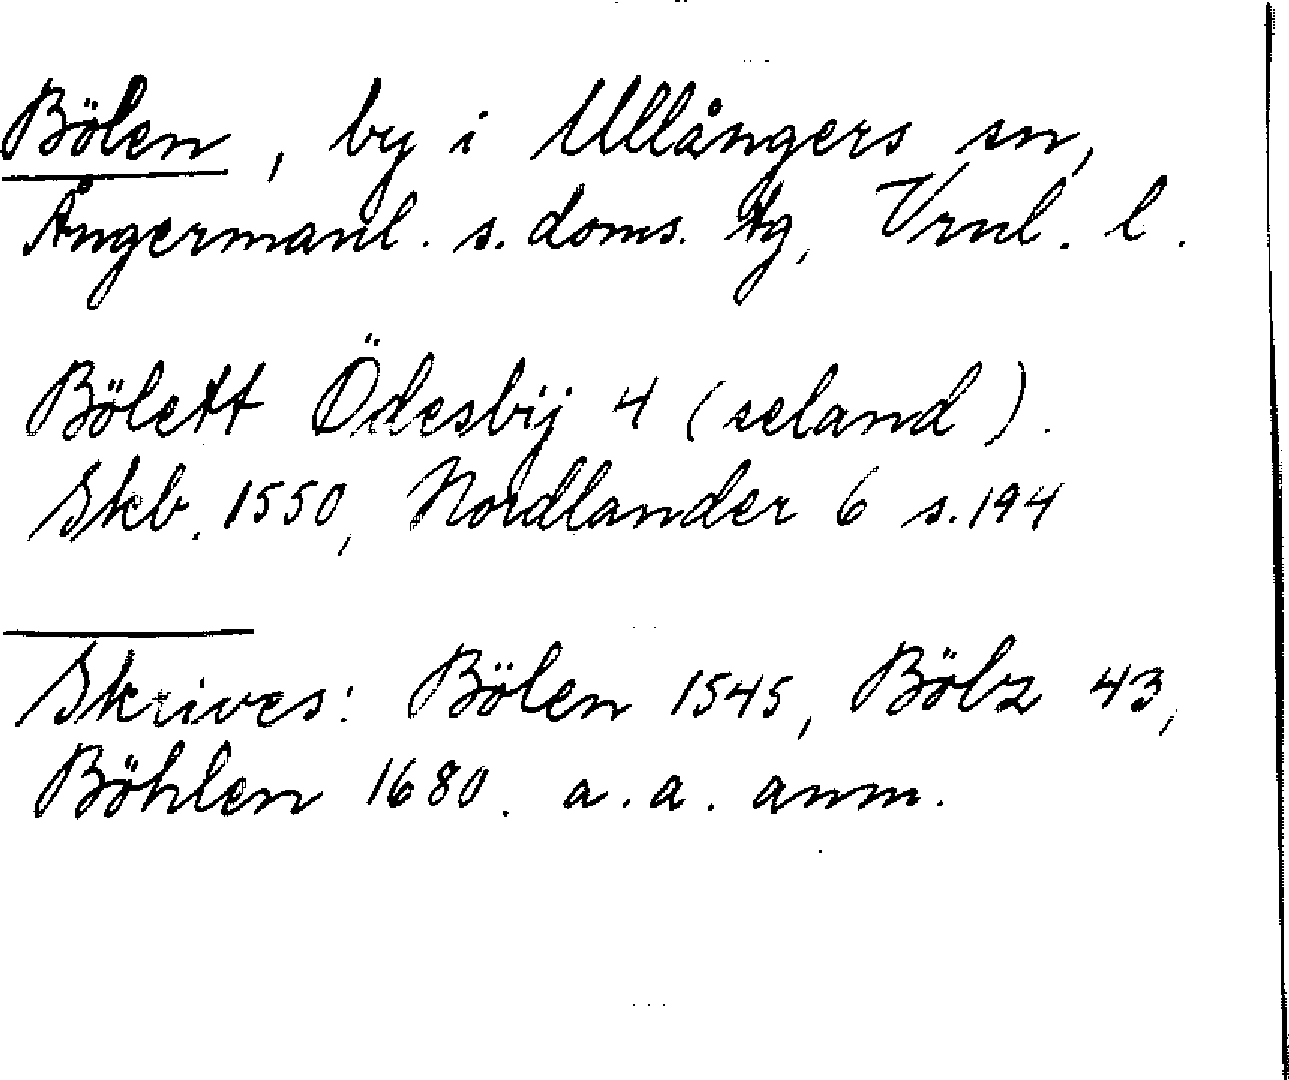 Bölen, by i Ullångers sn,
Ångermanl. s. doms. tg, Vrnl. l.
Bölett Ödesbij 4 (seland).
Skb. 1550, Nordlander 6 s. 194
Skrives: Bölen 1545, Bölz 43,
Böhlen 1680. a. a. anm.